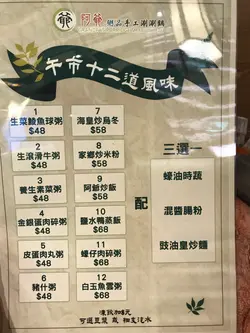 爺 阿爺 極品手工涮涮鍋
午市十二道風味
1
生菜鯪魚球粥
$48
2
生滾滑牛粥
$48
3
養生素菜粥
$48
4
金銀蛋肉碎粥
$48
5
皮蛋肉丸粥
$48
6
豬什粥
$48
7
海皇炒烏冬
$68
8
家鄉炒米粉
$58
9
阿爺炒飯
$58
10
鹽水鴨蒸飯
$68
11
蠔仔肉碎粥
$68
12
白玉魚雲粥
$68
配
三選一
蠔油時蔬
混醬腸粉
豉油皇炒麵
凍飲加8元
可選豆漿 或 細支汽水